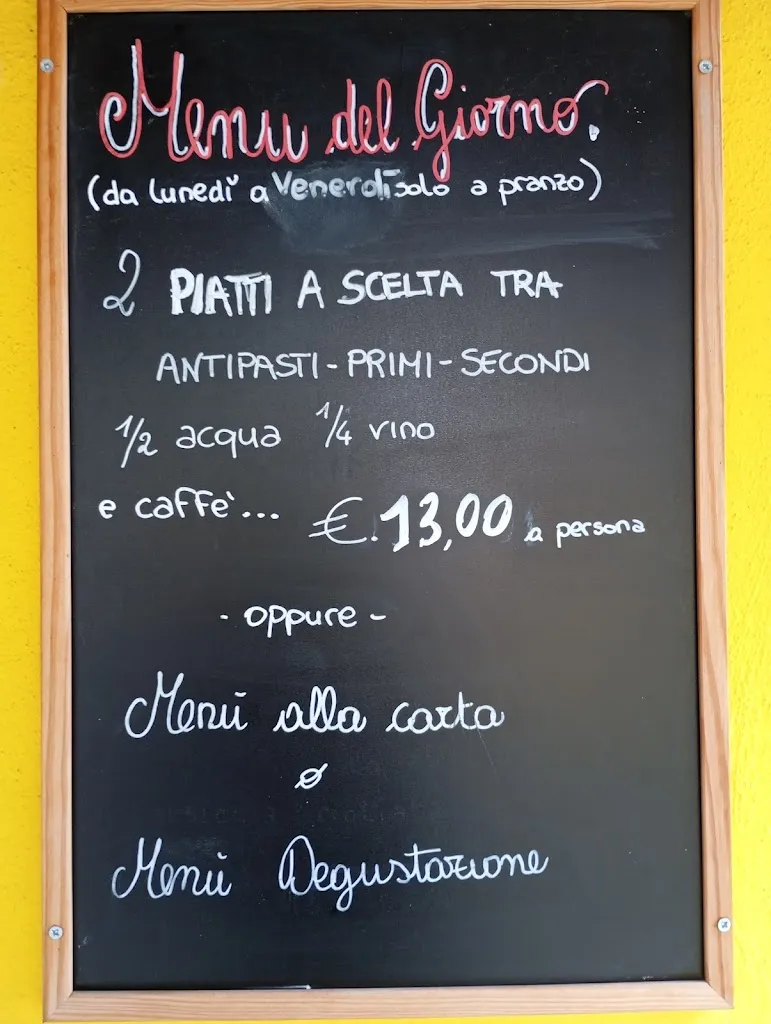 Menu del Giorno.
(da lunedì a Venerdì solo a pranzo)
2 PIATTI A SCELTA TRA
ANTIPASTI - PRIMI - SECONDI
1/2 acqua 1/4 vino
e caffè...
€. 13,00 a persona
- oppure -
Menù alla carta
o
Menù Degustazione